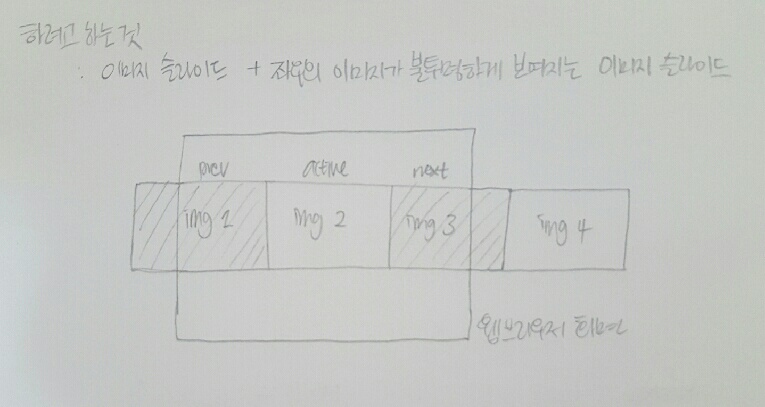 하려고 하는것
: 이미지 슬라이드 + 좌우의 이미지가 불투명하게 보여지는 이미지 슬라이드
prev active next
img 1 img 2 img 3 img 4
웹브라우저 화면